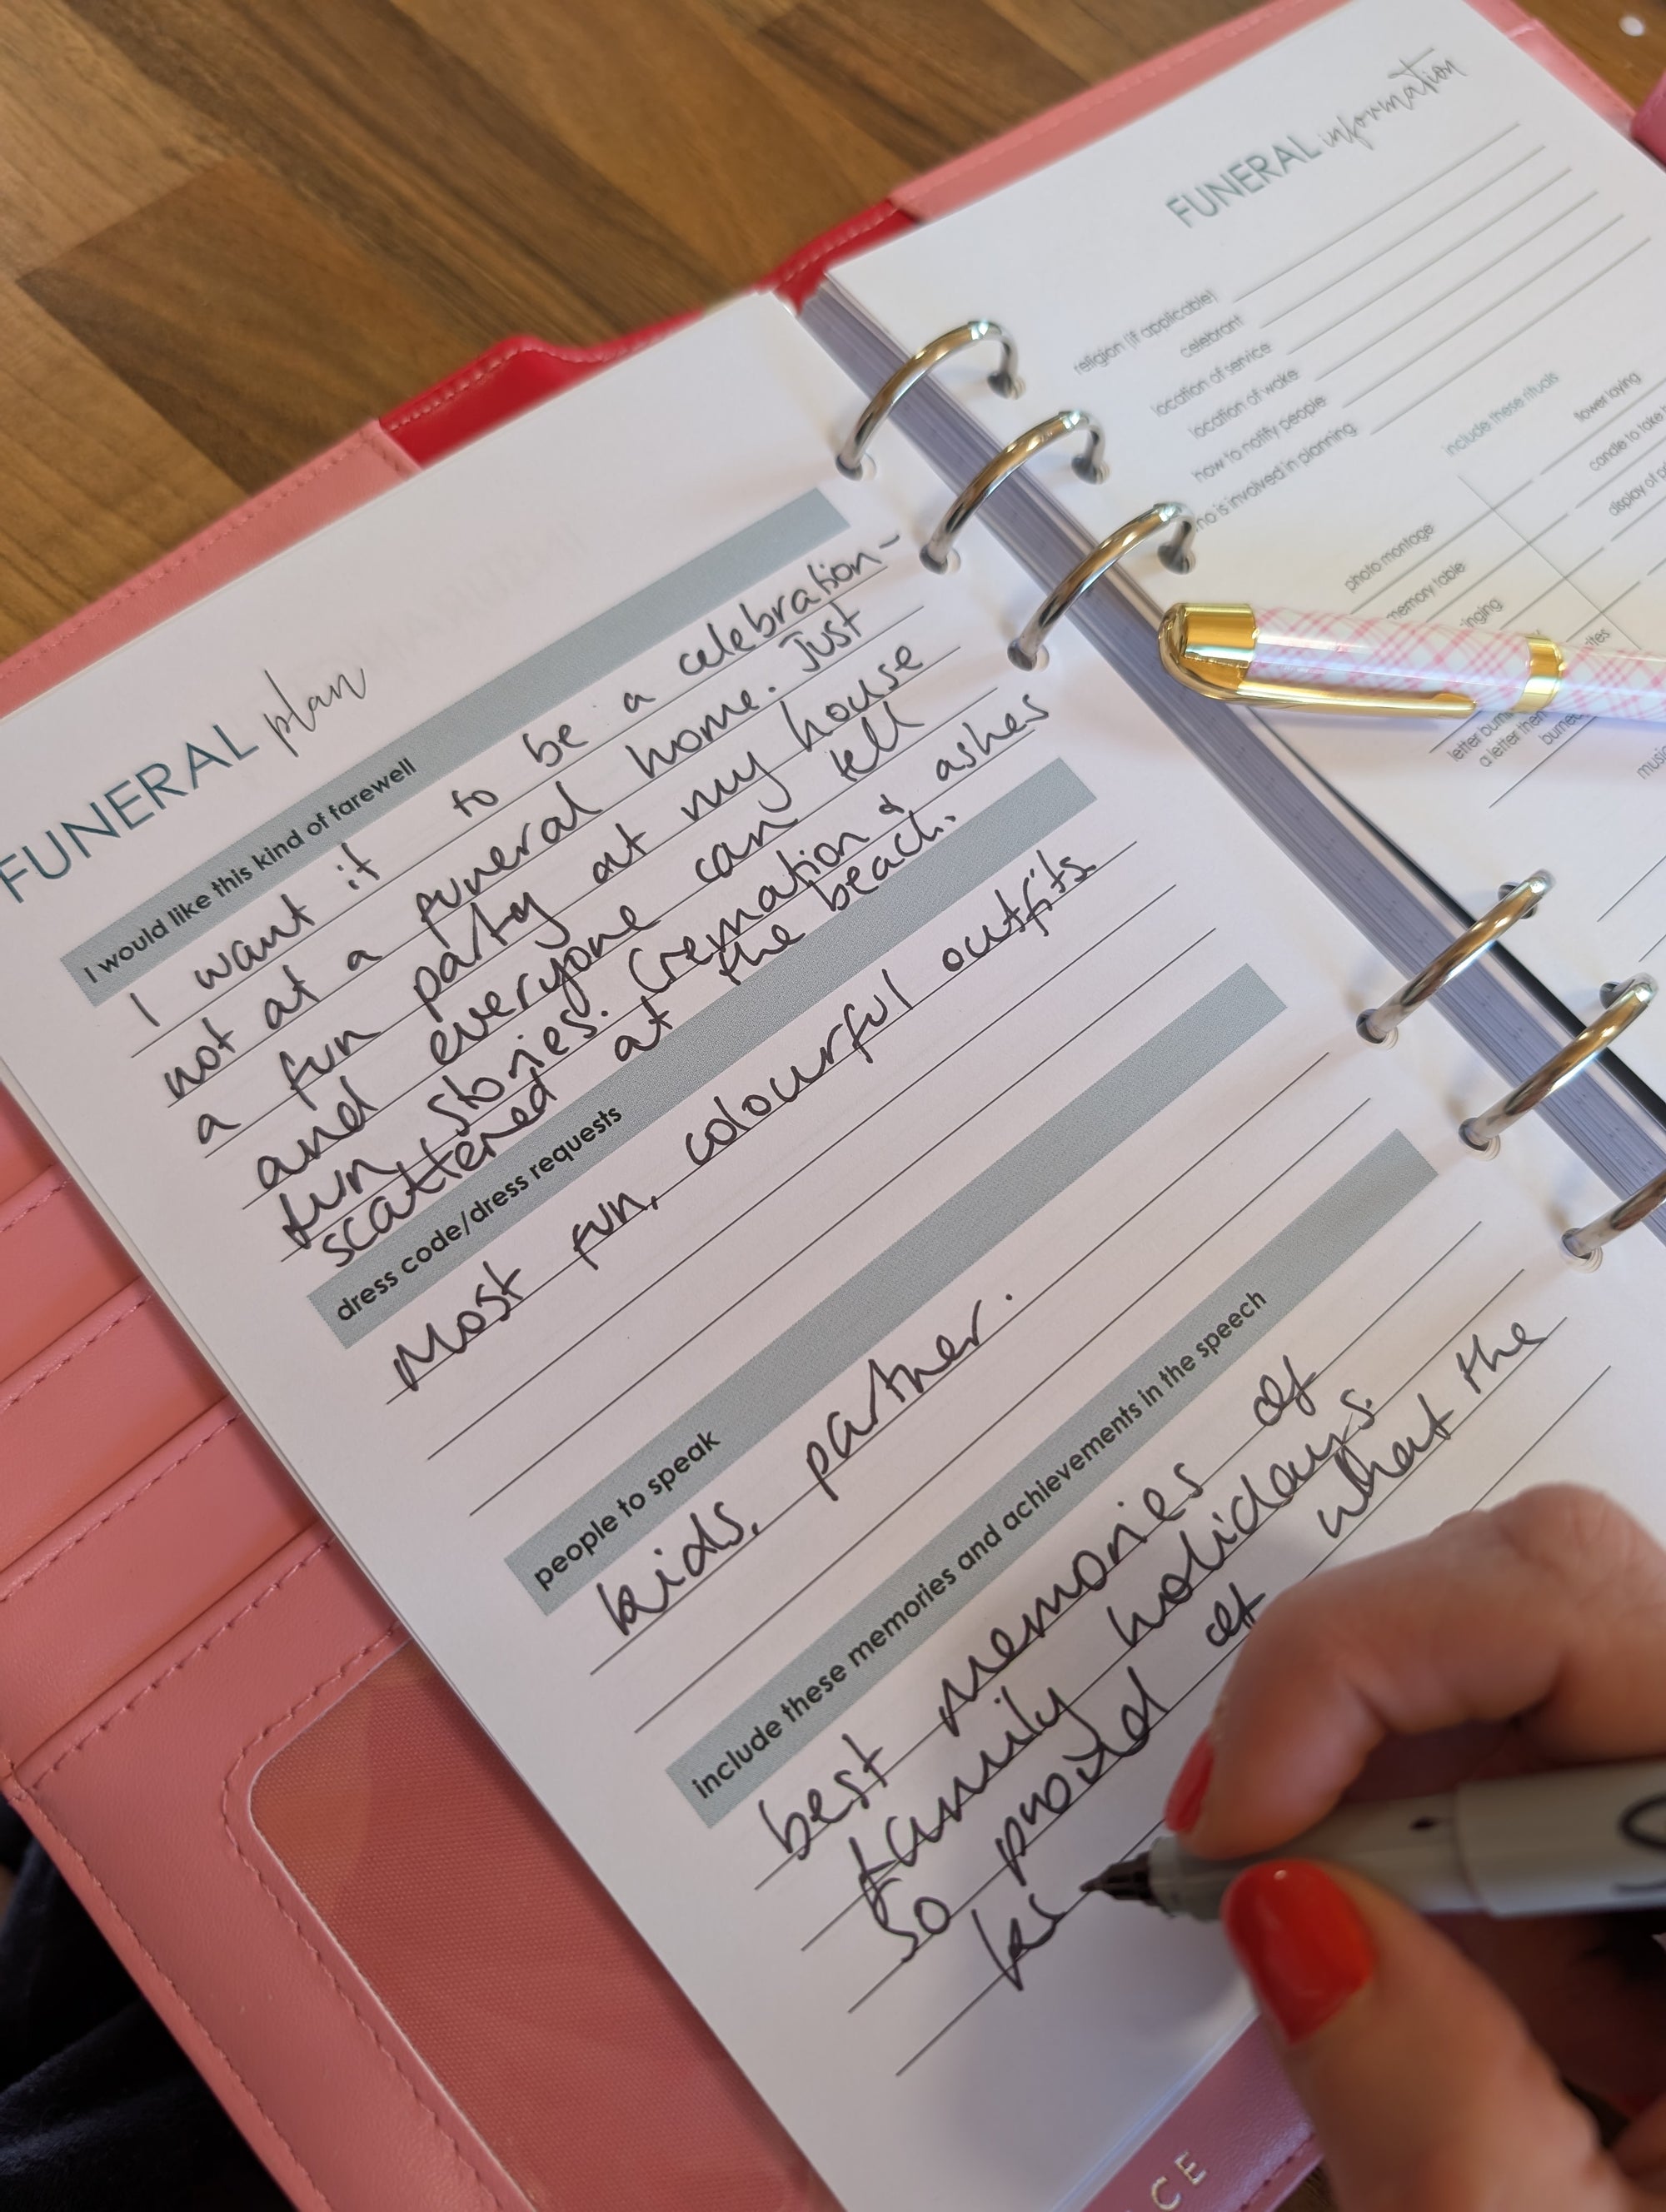 FUNERAL plan
I would like this kind of farewell
I want it to be a celebration-
not at a funeral home. Just
a fun party at my house
and everyone can tell
fun stories. Cremation & ashes
scattered at the beach.
dress code/dress requests
Most fun, colourful outfits
people to speak
kids, partner.
include these memories and achievements in the speech
best memories of
family holidays.
So proud of what the
FUNERAL information
religion (if applicable)
celebrant
location of service
location of wake
how to notify people
is involved in planning
include these rituals
flower laying
candle to take
display of
photo montage
memory table
letter
a letter then
burned